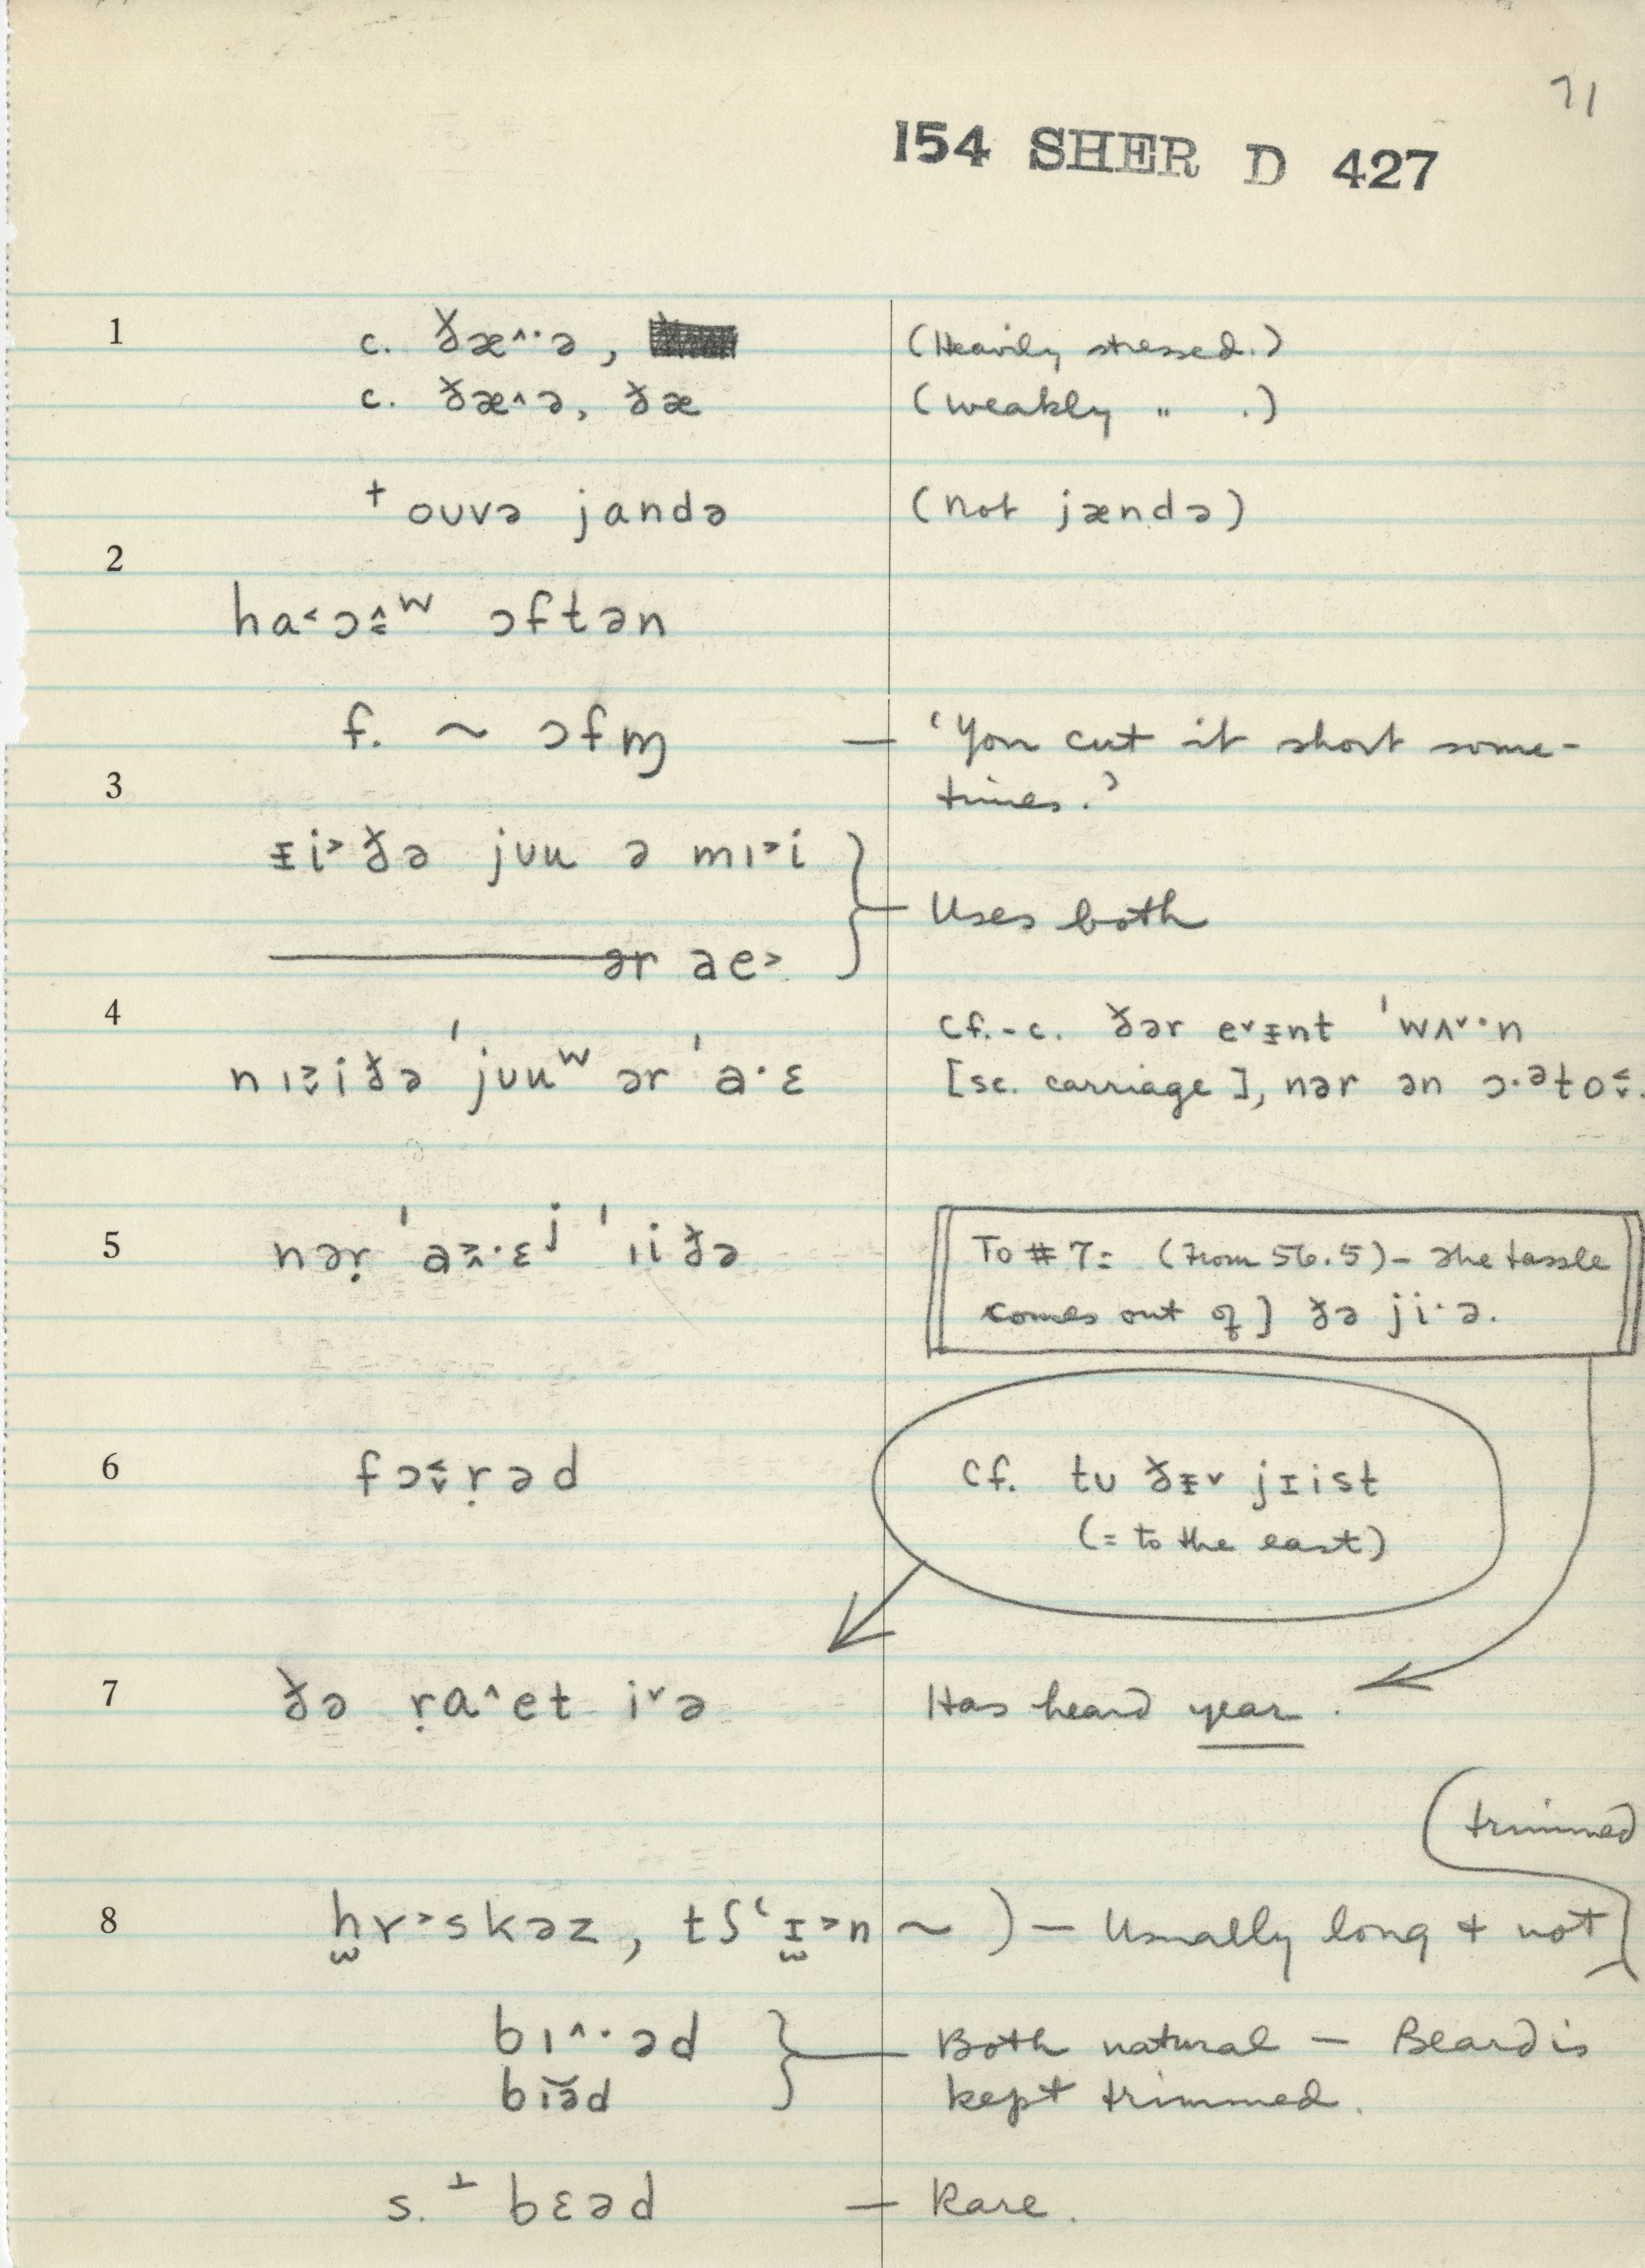 71
154 SHER D 427
1 c. ðæ^·ə, (Heavily stressed.)
c. ðæ^ə, ðæ (weakly " .)
+ ouvə jandə (not jændə)
2
ha˂ɔ̭̂ʷ ɔftən
f. ~ ɔfm̩ — 'You cut it short some-
3 times.'
ɪ̵i˃ðə juu ə mı˃i
Uses both
ər ae˃
4 cf.-c. ðər e˅ɪ̵nt 'wʌ˅·n
nı˃iðə 'juuʷ ər 'a·ɛ [sc. carriage], nər ən ɔ·ᵊto˂̬.
5 nəṛ 'a˃̭·ɛʲ 'ıiðə To #7: (From 56.5) – The tassle
comes out of] ðə ji·ə.
6 fɔ˂̬ṛəd Cf. tʊ ðɪ̵˅ jɪist
(= to the east)
7 ðə ṛa^et i˅ə Has heard year.
(trimmed
8 h̫ɤ˃skəz, tʃʻɪ̫˃n ~ ) — Usually long + not
bı^·əd Both natural — Beard is
bĭə̆d kept trimmed.
s. ⊥ bɛəd — Rare.